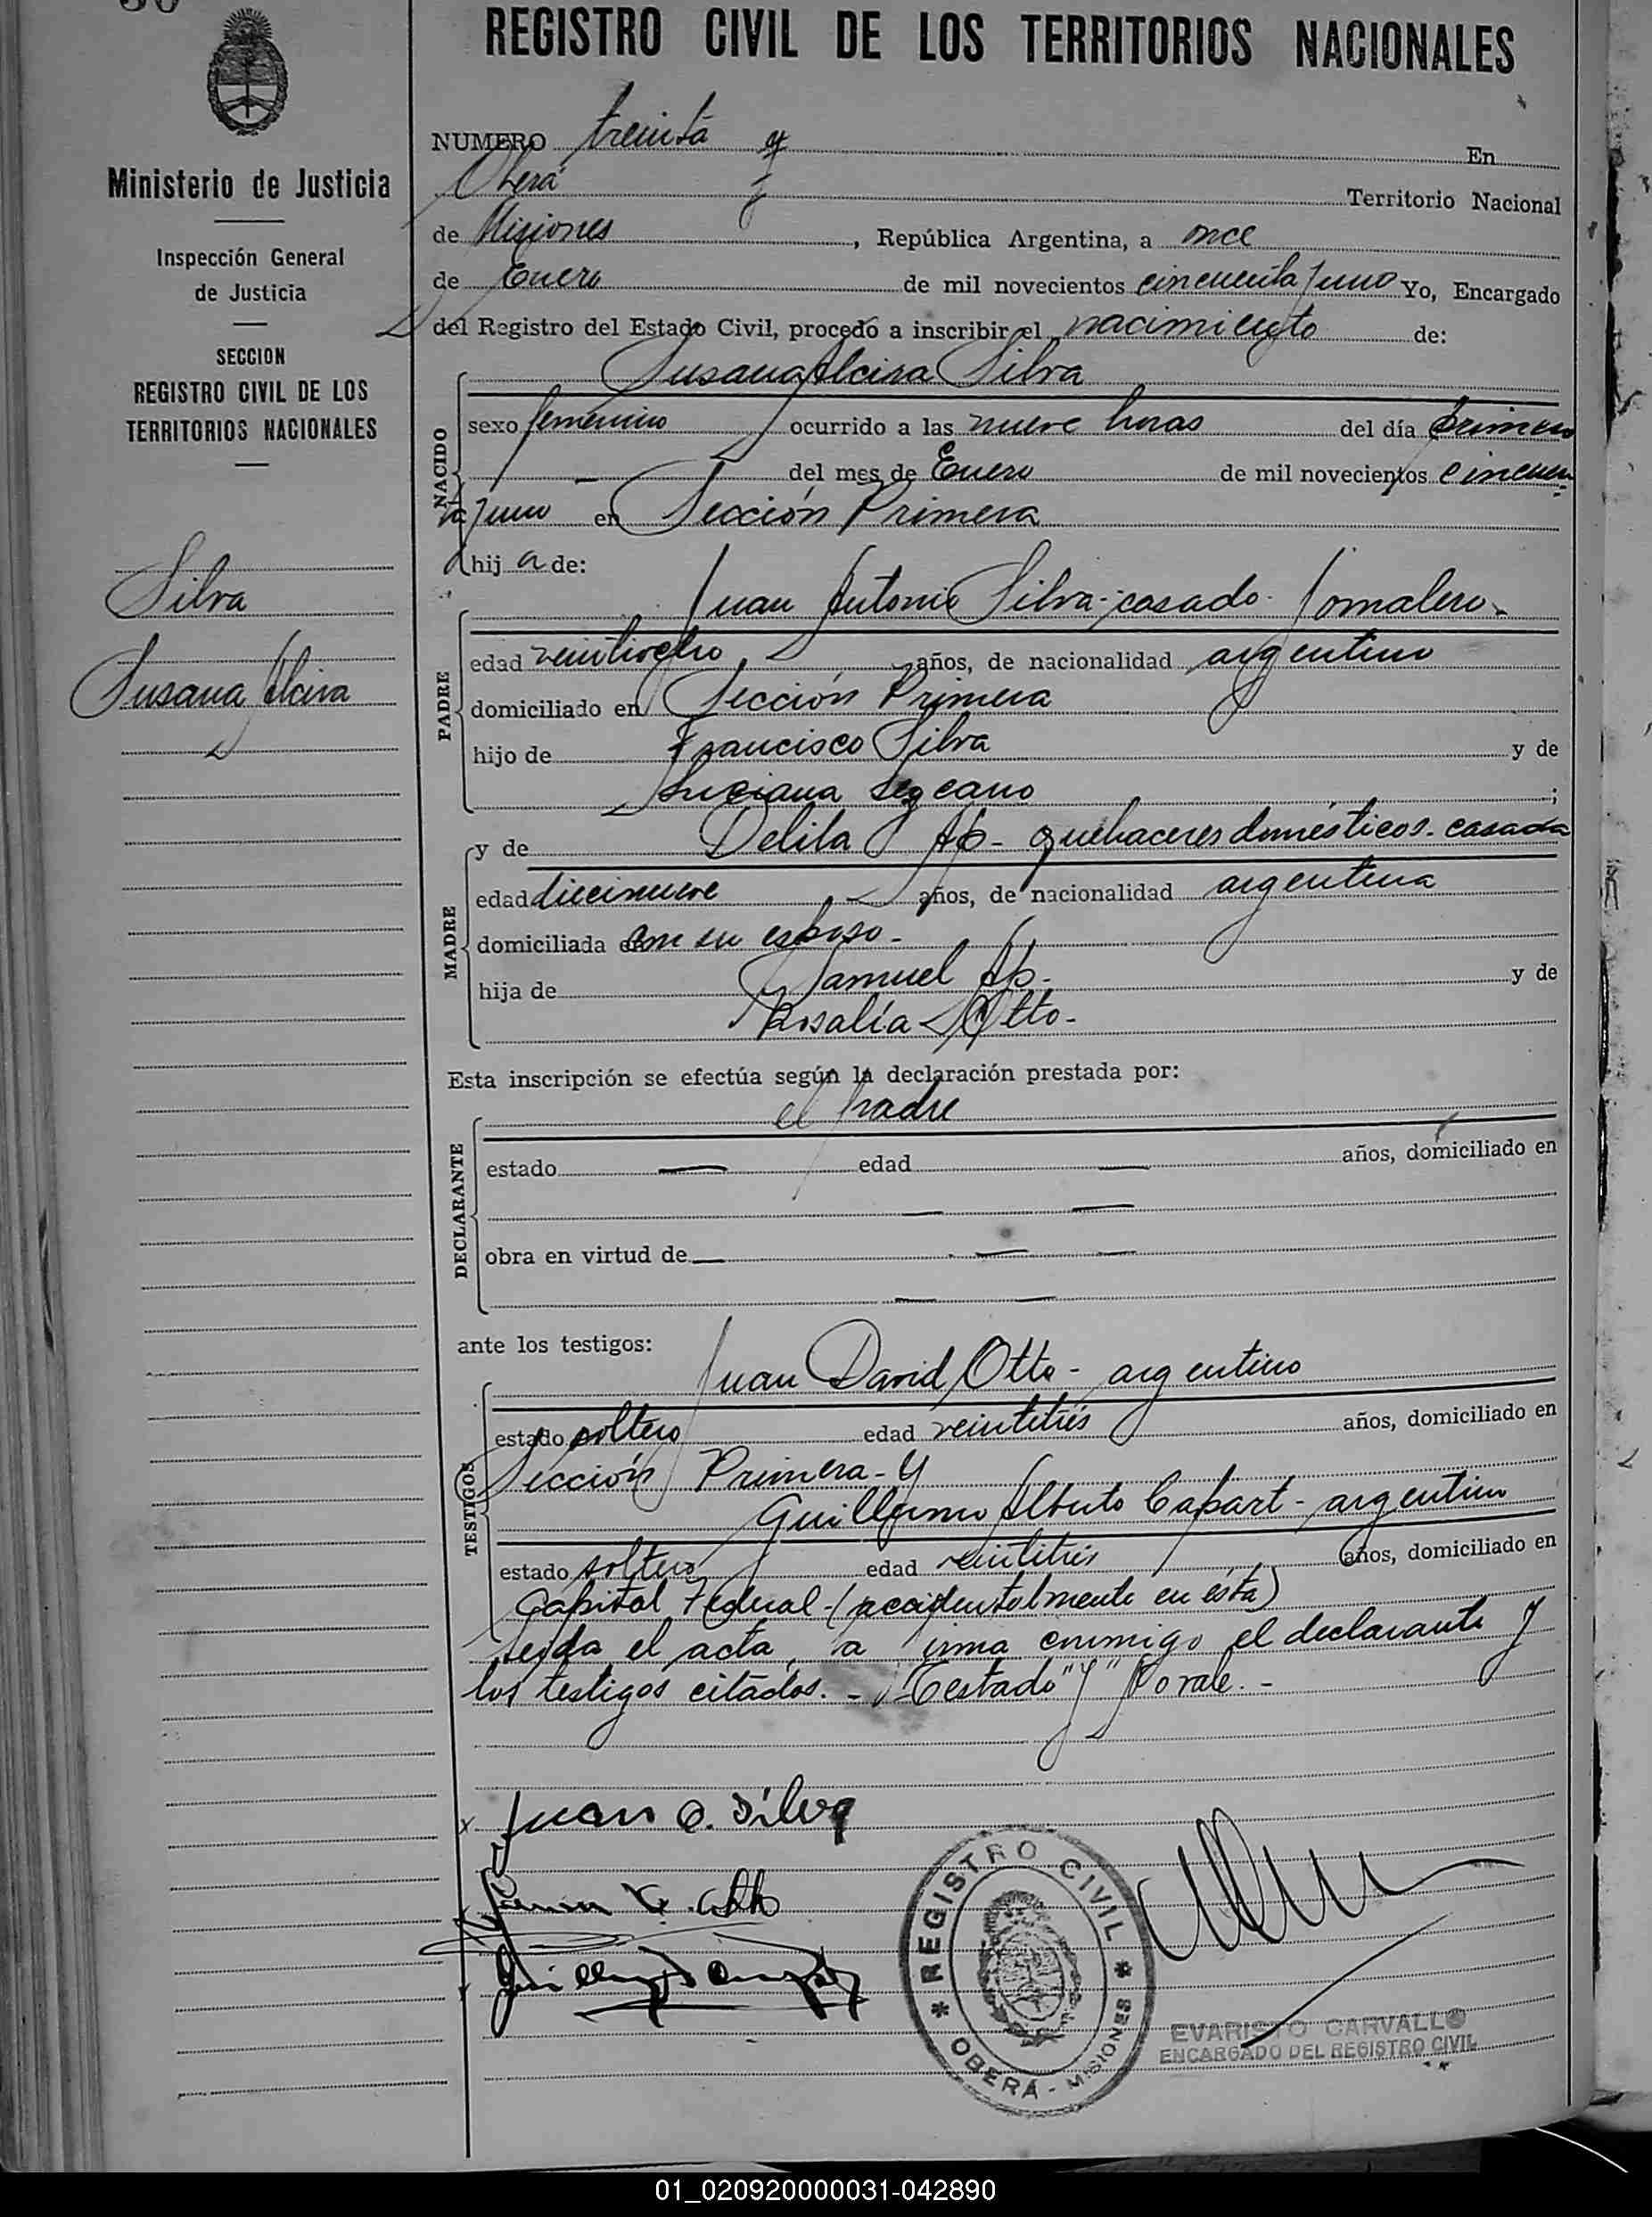 REGISTRO CIVIL DE LOS TERRITORIOS NACIONALES
Ministerio de Justicia
Inspección General
de Justicia
SECCION
REGISTRO CIVIL DE LOS
TERRITORIOS NACIONALES
Silva
Susana Alcira
NUMERO treinta En
Oberá Territorio Nacional
de Misiones, República Argentina, a once
de Enero de mil novecientos cincuenta y uno Yo, Encargado
del Registro del Estado Civil, procedo a inscribir el nacimiento de:
Susana Alcira Silva
NACIDO
sexo femenino ocurrido a las nueve horas del día primero
— del mes de Enero de mil novecientos cincuen-
ta y uno en Sección Primera
hija de:
Juan Antonio Silva-casado-Jornalero-
PADRE
edad veintiocho años, de nacionalidad argentino
domiciliado en Sección Primera
hijo de Francisco Silva y de
Luciana ;
MADRE
y de Delila Ap- quehaceres domésticos-casada
edad diecinueve años, de nacionalidad argentina
domiciliada con su esposo-
hija de Samuel Ap- y de
Rosalía Otto-
Esta inscripción se efectúa según la declaración prestada por:
el padre
DECLARANTE
estado — edad — años, domiciliado en
— —
obra en virtud de — — —
— —
ante los testigos:
Juan David Otto- argentino
TESTIGOS
estado soltero edad veintitrés años, domiciliado en
Sección Primera-Y
Guillermo Alberto Capart-argentino
estado soltero edad veintitrés años, domiciliado en
Capital Federal-(accidentalmente en ésta)
Leída el acta, la firma conmigo el declarante y
los testigos citados.- Testado "y" No vale.-
Juan A. Silva
REGISTRO CIVIL
OBERÁ - MISIONES
EVARISTO CARVALLO
ENCARGADO DEL REGISTRO CIVIL
01_020920000031-042890